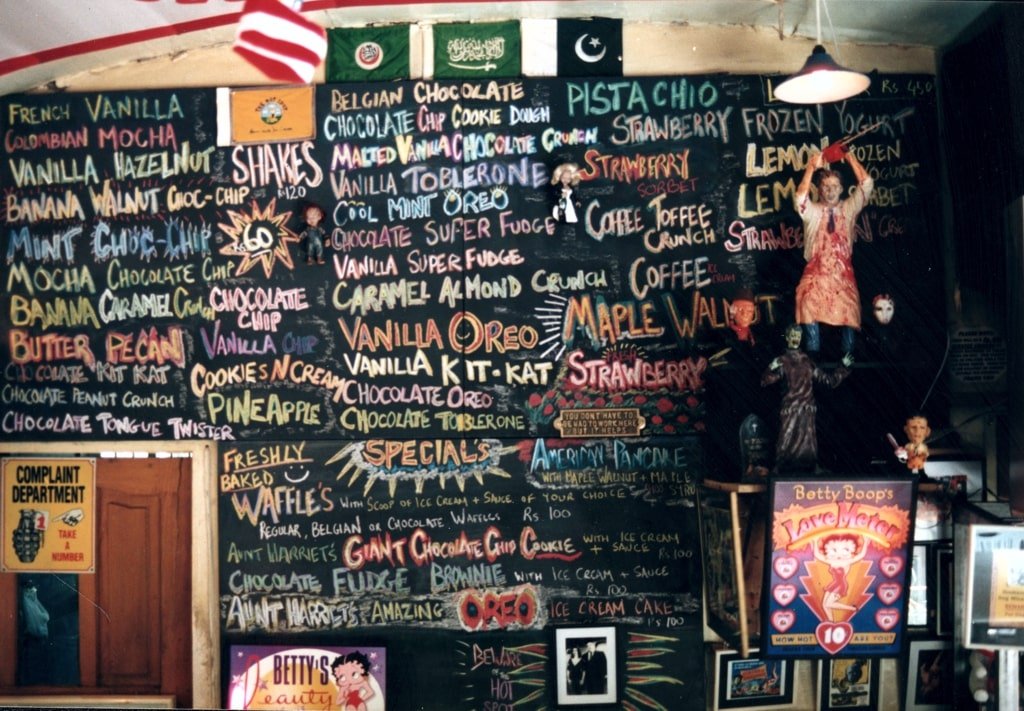 FRENCH VANILLA
COLOMBIAN MOCHA
VANILLA HAZELNUT
BANANA WALNUT CHOC-CHIP
MINT CHOC-CHIP
MOCHA CHOCOLATE CHIP
BANANA CARAMEL CRUNCH
BUTTER PECAN
CHOCOLATE KIT KAT
CHOCOLATE PEANUT CRUNCH
CHOCOLATE TONGUE TWISTER
SHAKES
RS 120
60
CHOCOLATE
CHIP
VANILLA CHIP
COOKIES N CREAM
PINEAPPLE
BELGIAN CHOCOLATE
CHOCOLATE CHIP COOKIE DOUGH
MALTED VANILLA CHOCOLATE CRUNCH
VANILLA TOBLERONE
COOL MINT OREO
CHOCOLATE SUPER FUDGE
VANILLA SUPER FUDGE
CARAMEL ALMOND CRUNCH
VANILLA OREO
VANILLA KIT-KAT
CHOCOLATE OREO
CHOCOLATE TOBLERONE
PISTACHIO
STRAWBERRY
STRAWBERRY
SORBET
COFFEE TOFFEE
CRUNCH
COFFEE ICE CREAM
MAPLE WALNUT
STRAWBERRY
YOU DON'T HAVE TO
BE MAD TO WORK HERE
BUT IT HELPS
Rs 450
FROZEN YOGURT
LEMON FROZEN
YOGURT
SPECIALS
FRESHLY
BAKED
WAFFLE'S WITH SCOOP OF ICE CREAM + SAUCE OF YOUR CHOICE
REGULAR, BELGIAN OR CHOCOLATE WAFFLES Rs. 100
AMERICAN PANCAKE
WITH MAPLE WALNUT + MAPLE
AUNT HARRIET'S GIANT CHOCOLATE CHIP COOKIE WITH ICE CREAM
+ SAUCE Rs 100
CHOCOLATE FUDGE BROWNIE WITH ICE CREAM + SAUCE
Rs 100
AUNT HARRIETS AMAZING OREO ICE CREAM CAKE
Rs 100
BEWARE
OF THE
HOT
SPOT
COMPLAINT
DEPARTMENT
1
TAKE
A
NUMBER
BETTY'S
Beauty
Betty Boop's
Love Meter
HOW HOT 10 ARE YOU?